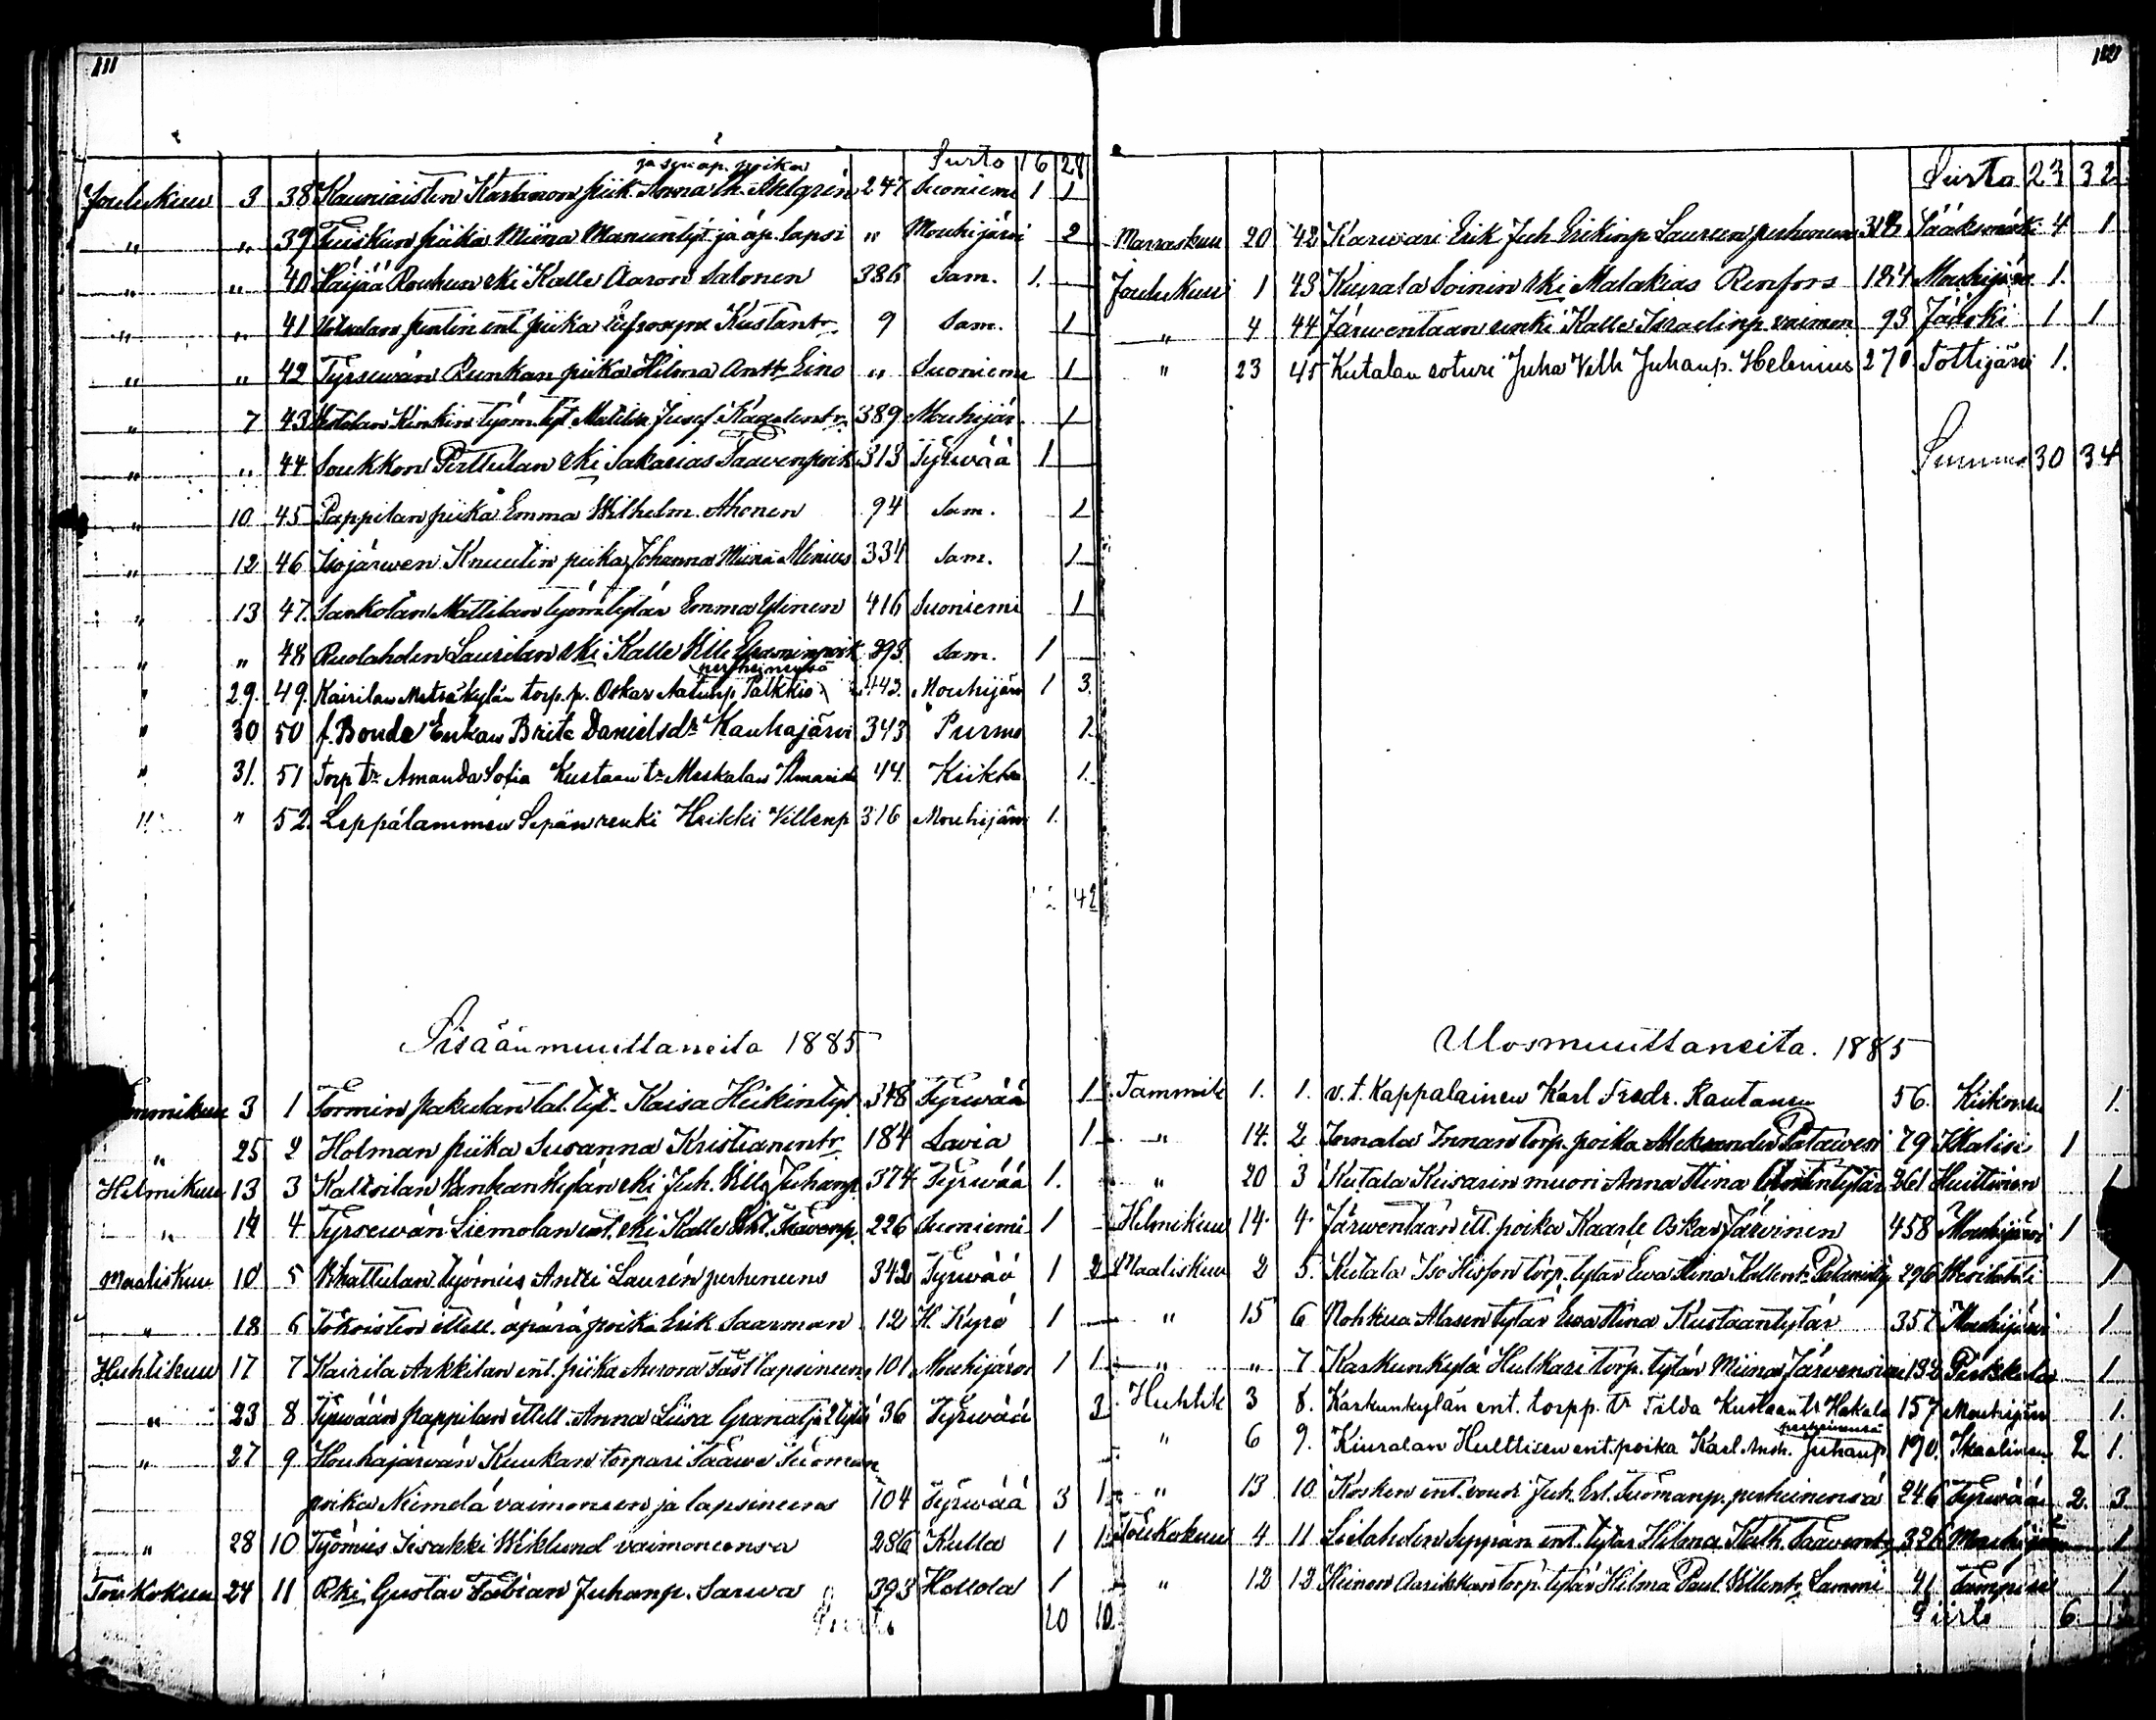 111
ja sen äp. poika Siirto 16 28
Joulukuu 3 38 Kauniaisten Kartanon piik. Anna Ahlgrén 247 Suoniemi 1 1
" " 39 piika Miina Manuntyt. ja äp. lapsi " Mouhijärvi 2
" " 40 Häijää Rouhun rki Kalle Aaron Salonen 386 Sam. 1.
" " 41 ent. piika Eufrosyne Kustantr. 9 Sam. 1
" " 42 Tyrsewän Runkan piika Hilma Antt. Eino " Suoniemi 1
" 7 43 työm. tyt. Matilda Josef. 389 Mouhijär. 1
" " 44 Soukkon Perttulan rki Sakarias Taavenpoik. 313 Tyrwää 1
" 10 45 Pappilan piika Emma Wilhelm. Ahonen 94 Sam. 2
" 12 46 Isojärwen Knuutin piika Johanna Miina Alinius 334 Sam. 1
" 13 47. Sarkolan Mattilan työm. tytär Emma Ylinen 416 Suoniemi 1
" " 48 Ruolahden Laurilan rki Kalle Ville 293. Sam. 1
perheinensä
" 29. 49. Kairilan Metsäkylän torp. p. Oskar Aatunp. Palkkio 443. Mouhijärv 1 3.
" 30 50 f. Bonde Enkan Brita Danielsdr Kauhajärvi 343 Purmo 1.
" 31. 51 Torp. tr. Amanda Sofia Kustaan tr. Meskalan 44. Kiikka 1.
" " 52. Leppälammen Sepän renki Heikki Villenp. 316 Mouhijärvi 1.
42
Sisäänmuuttaneita 1885
3 1 Tormin pakulan tal. tyt. Kaisa Heikintyt. 348 Tyrwää 1
" 25 2 Holman piika Susanna Kristianintr. 184 Lavia 1
Helmikuu 13 3 Kaltsilan rki Juh. Ville Juhanp. 374 Tyrwää 1.
" 14 4 Tyrsewän Liemolan ent. rki Kalle 226 Suoniemi 1
Maaliskuu 10 5 työmies Antti Laurén perheneens 342 Tyrwää 1 2
" 18 6 ittell. äpärä poika Erik Saarman 12 H. Kyrö 1
Huhtikuu 17 7 Kairila Arkkilan ent. piika Aurora lapsineens 101 Mouhijärvi 1 1
" 23 8 Tyrwään pappilan ittell. Anna Liisa Granat ja 2 tyt. 36 Tyrwää 3
" 27 9 Houhajärwän Kuukan torpari Taawe Tuoman
poika Niemelä vaimoneen ja lapsineens 104 Tyrwää 3 1
" 28 10 Työmies Iisakki Wiklund vaimoneensa 286 Kulla 1 1
Toukokuu 24 11 Rki Gustav Fabian Juhanp. Sarwa 393 Hollola 1
Siirto 10 10.
Siirto 23 32
Marraskuu 20 42 Karwari Erik Juh. Erikinp. Laureen perheneen Sääksmäki 4 1
Joulukuu 1 43 Kiurala Soinin rki Malakias Renfors 184 Mouhijärv. 1.
" 4 44 Järwentaan renki Kalle Israelinp. vaimon. 93 Jääski 1 1
" 23 45 Kutalan soturi Juha Velh. Juhanp. Helenius 270. Tottijärvi 1.
Summa 30 34
Ulosmuuttaneita. 1885
Tammik. 1. 1. v. t. Kappalainen Karl Fredr. Rautanen 56. Kiikonen 1.
" 14. 2. Innala Innan torp. poika Aleksander 79 Ikalisi 1
" 20 3 Kutala Keisarin muori Anna Stina 261 Huittinen 1
Helmikuu 14. 4. Järwentään itt. poika Kaarle Oskar Järvinen 458 Mouhijärvi 1
Maaliskuu 2 5. Kutala torp. tytär Ewa Stina Kallentr. 296 Merikatvia 1
" 15 6 Nohkua Alasen tytär Ewa Stina Kustaantytär 357 Mouhijärvi 1
" " 7 Karkunkylä Hulkari torp. tytär Miina Järvensivu 132 Pirkkala 1
Huhtik. 3 8. Karkunkylän ent. torpp. tr. Tilda Kustaantr. Hakala 157 Mouhijärv. 1.
perheinensä
" 6 9. Kiuralan Hulttisen ent. poika Karl Juhanp. 190. Ikaalinen. 2 1.
" 13 10. Kosken ent. Juh. Erl. Tuomanp. perheinensä 246 Tyrwään 2. 3.
Toukokuu 4 11 Seppän ent. tytär Hilma Kath. Taaventr. 326 Mouhijärvi 1
" 12 12 Heinon torp. tytär Hilma Paul. Villentr. Lammi 41 1
Siirto 6.